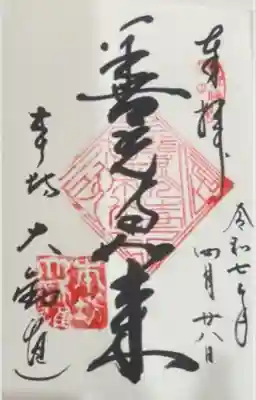 奉拝
令和七年
四月廿八日
善光如来
本坊 大勧進